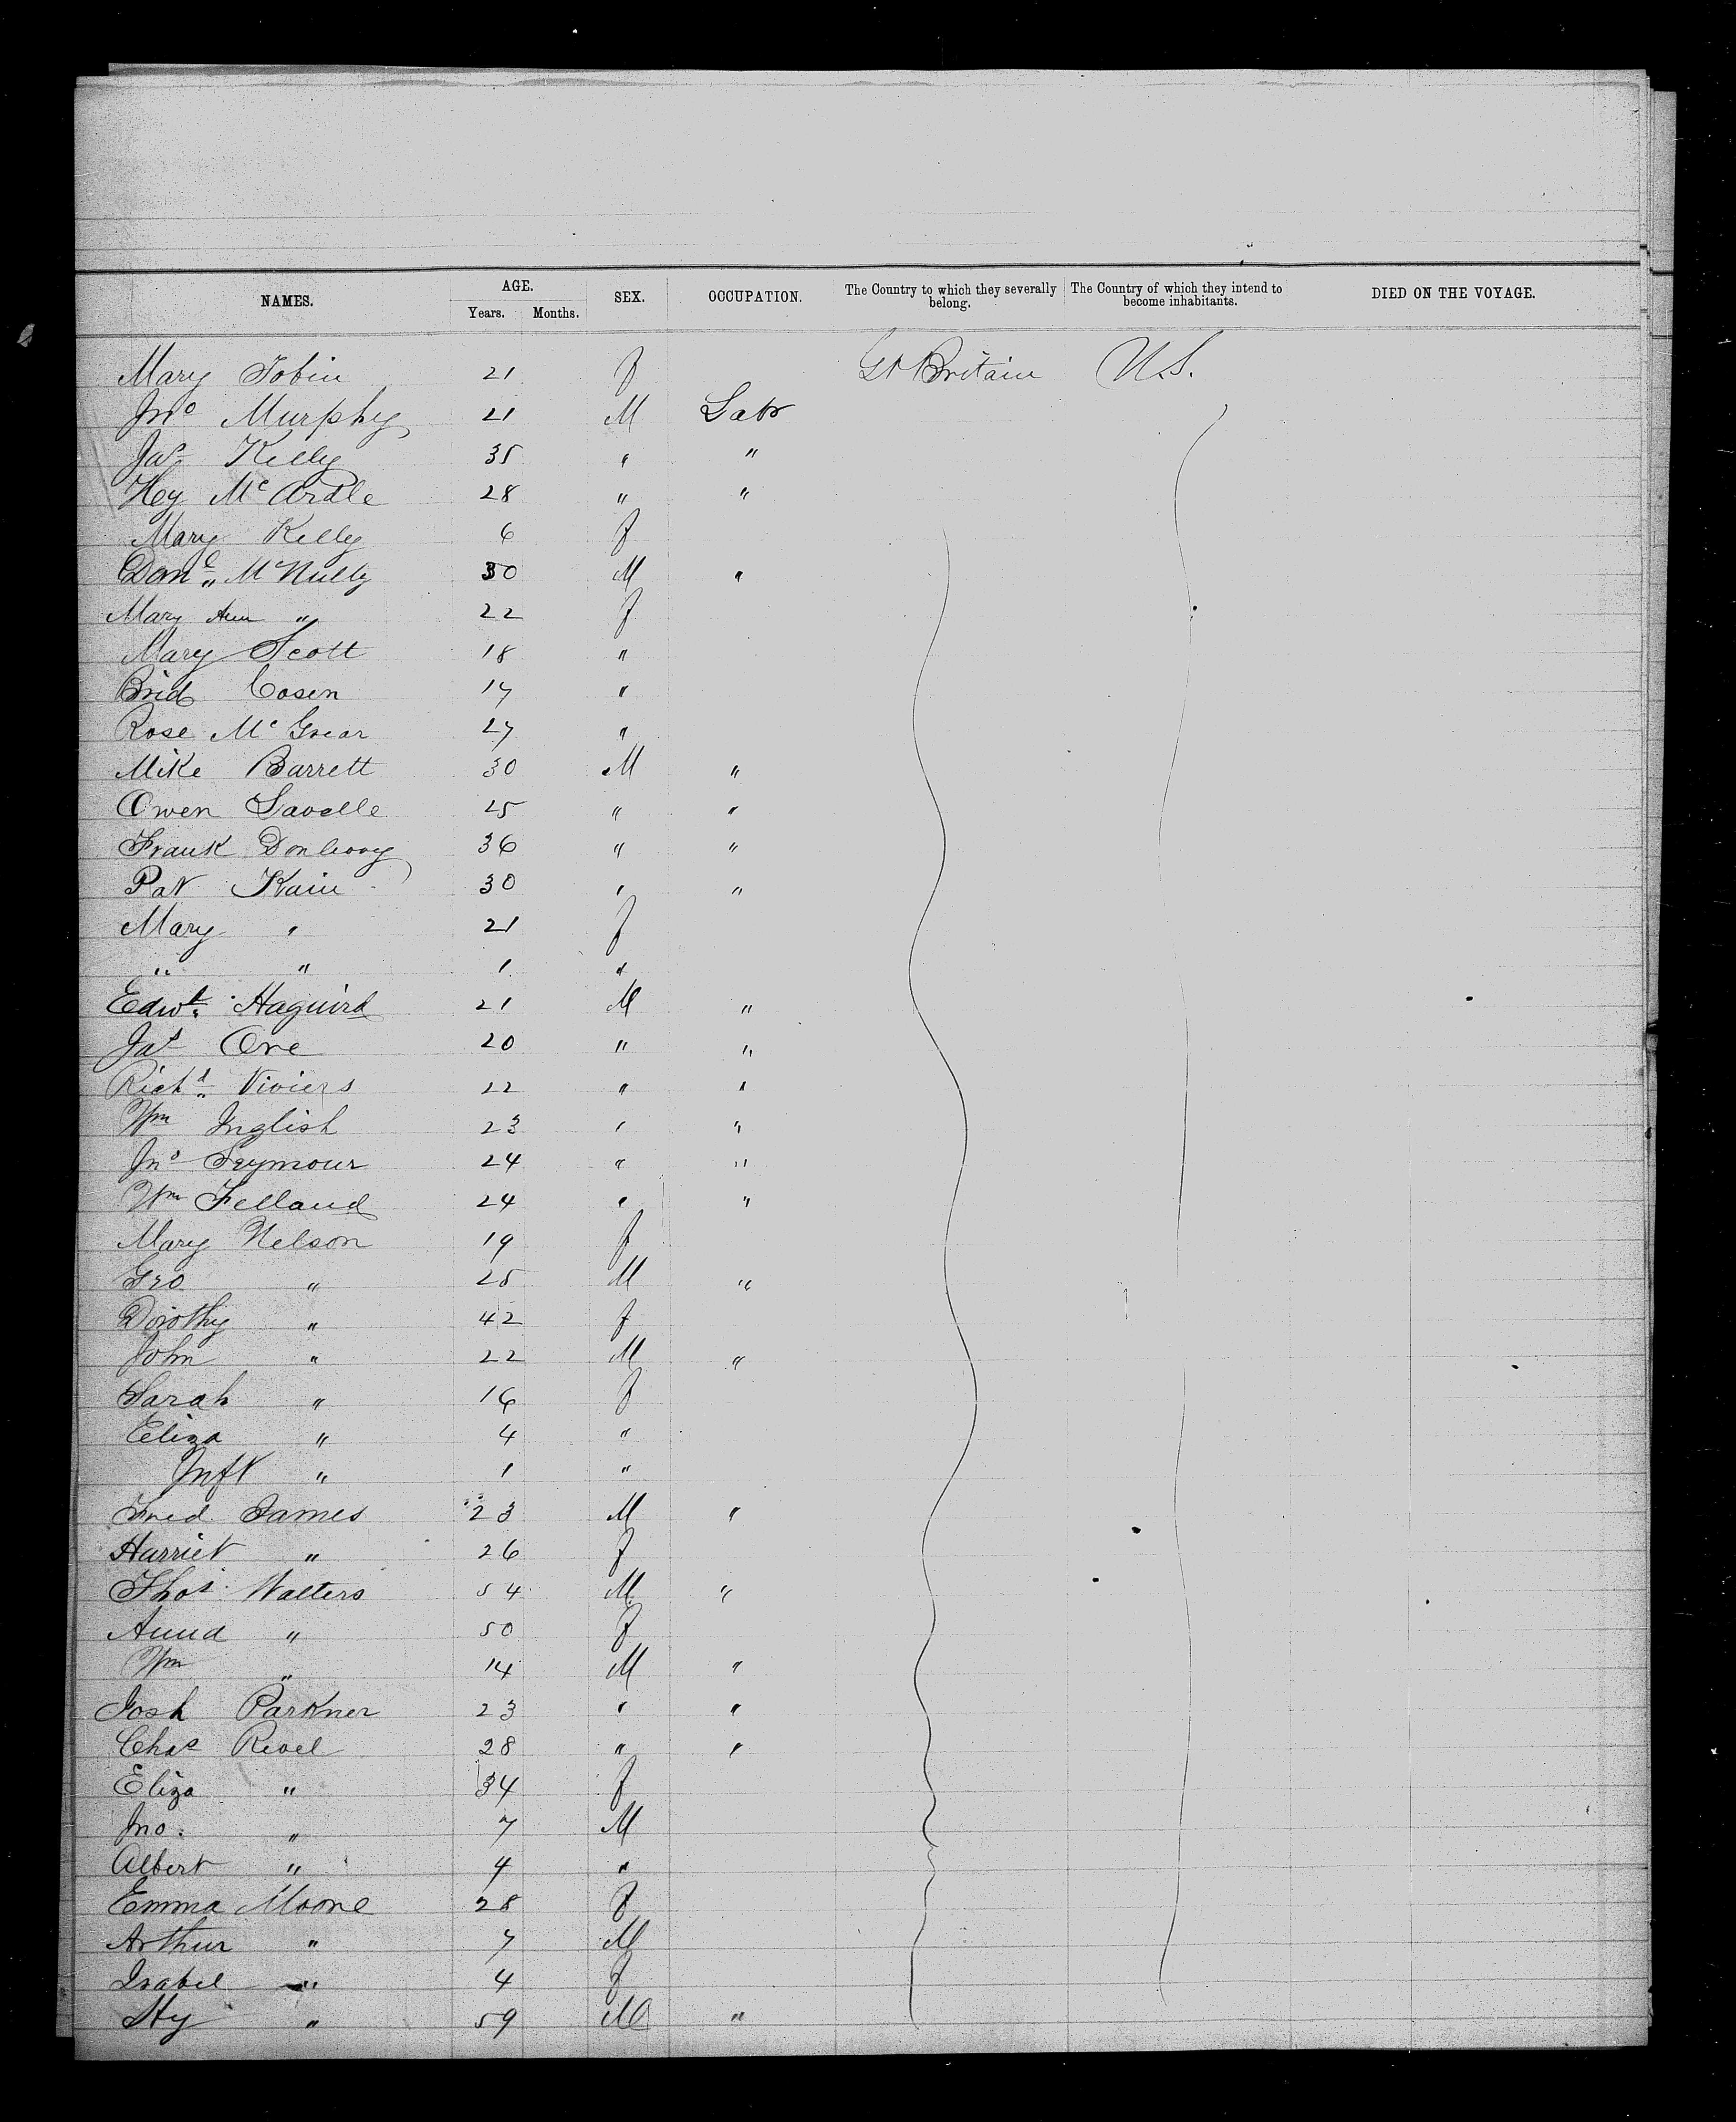 NAMES. AGE. SEX. OCCUPATION. The Country to which they severally belong. The Country of which they intend to become inhabitants. DIED ON THE VOYAGE.
Years. Months.
Mary Tobin 21 f Gt Britain U.S.
Jno Murphy 21 M Labr
Jas Kelly 35 " "
Hey McArdle 28 " "
Mary Kelly 6 f
Danl McNulty 30 M "
Mary Ann " 22 f
Mary Scott 18 "
Brid Cosen 17 "
Rose McGrear 27 "
Mike Barrett 30 M "
Owen Lavelle 25 " "
Frank Donleavy 36 " "
Pat Kain 30 " "
Mary " 21 f
" " 1 "
Edwd Haguird 21 M "
Jas Ore 20 " "
Richd Viviers 22 " "
Wm Inglish 23 " "
Jno Seymour 24 " "
Wm Felland 24 " "
Mary Nelson 19 f
Geo " 25 M "
Dorothy " 42 f
John " 22 M "
Sarah " 16 f
Eliza " 4 "
Inft " 1 "
Fred James 23 M "
Harriet " 26 f
Thos Walters 54 M "
Anna " 50 f
Wm " 14 M "
Josh Parkner 23 " "
Chas Revel 28 " "
Eliza " 34 f
Jno. " 7 M
Albert " 4 "
Emma Moone 28 f
Arthur " 7 M
Isabel " 4 f
Hy " 59 M "